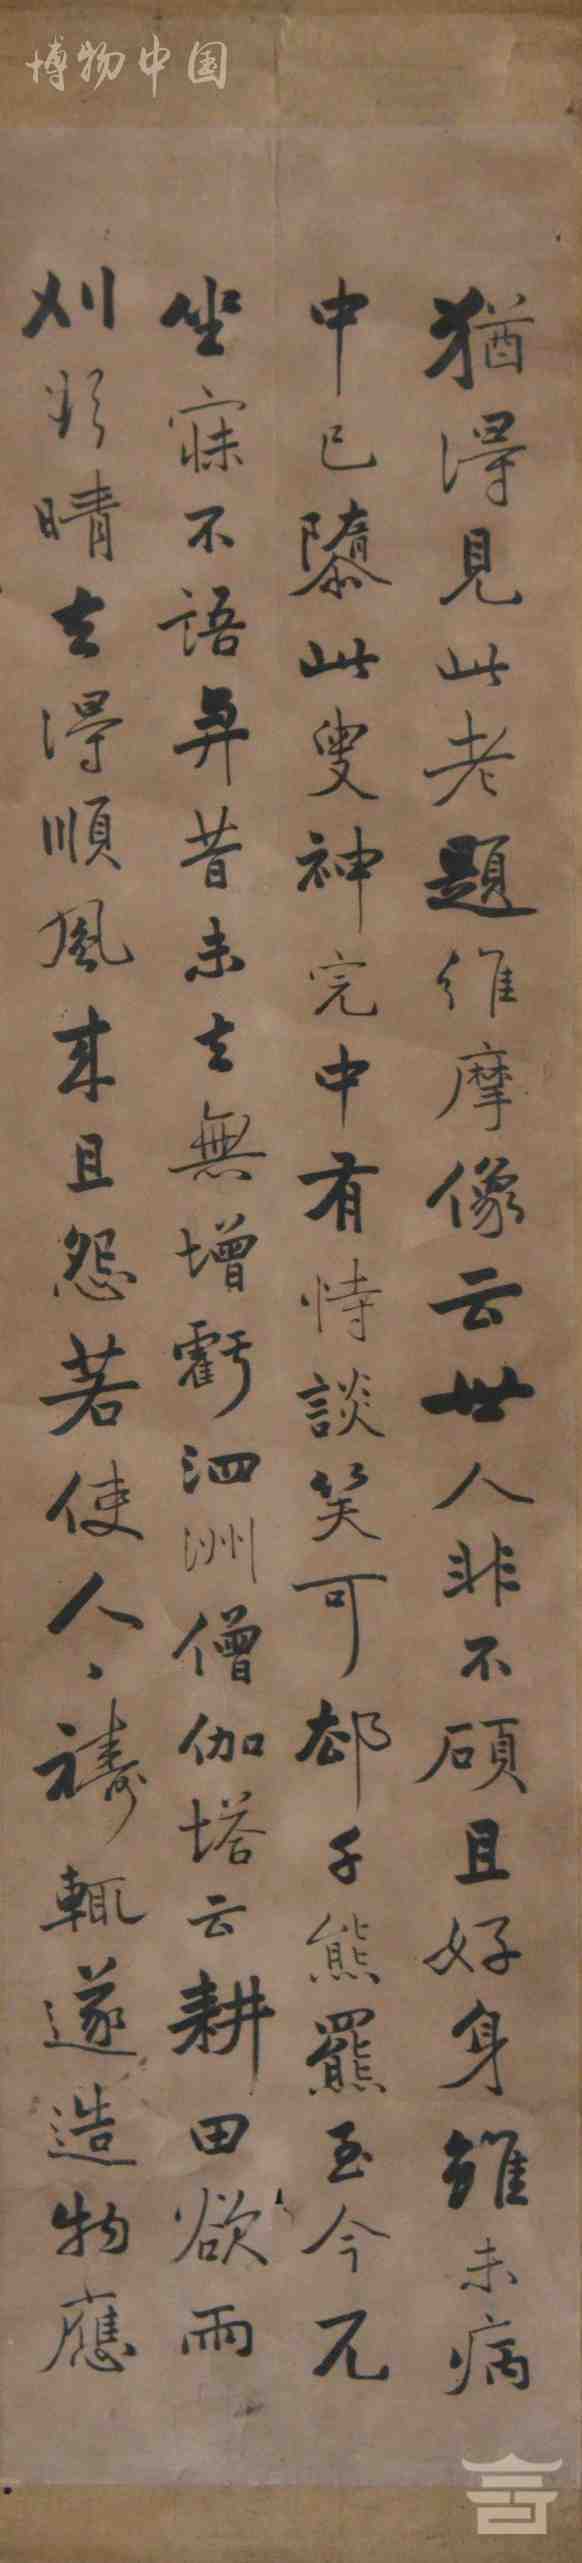 博物中国
猶得見此老題維摩像云世人非不碩且好身雖未病
中已隳此叟神完中有恃談笑可却千熊羆至今兀
坐寐不語与昔未去無增虧泗洲僧伽塔云耕田欲雨
刈欲晴去得順風来且怨若使人丶禱輒遂造物應